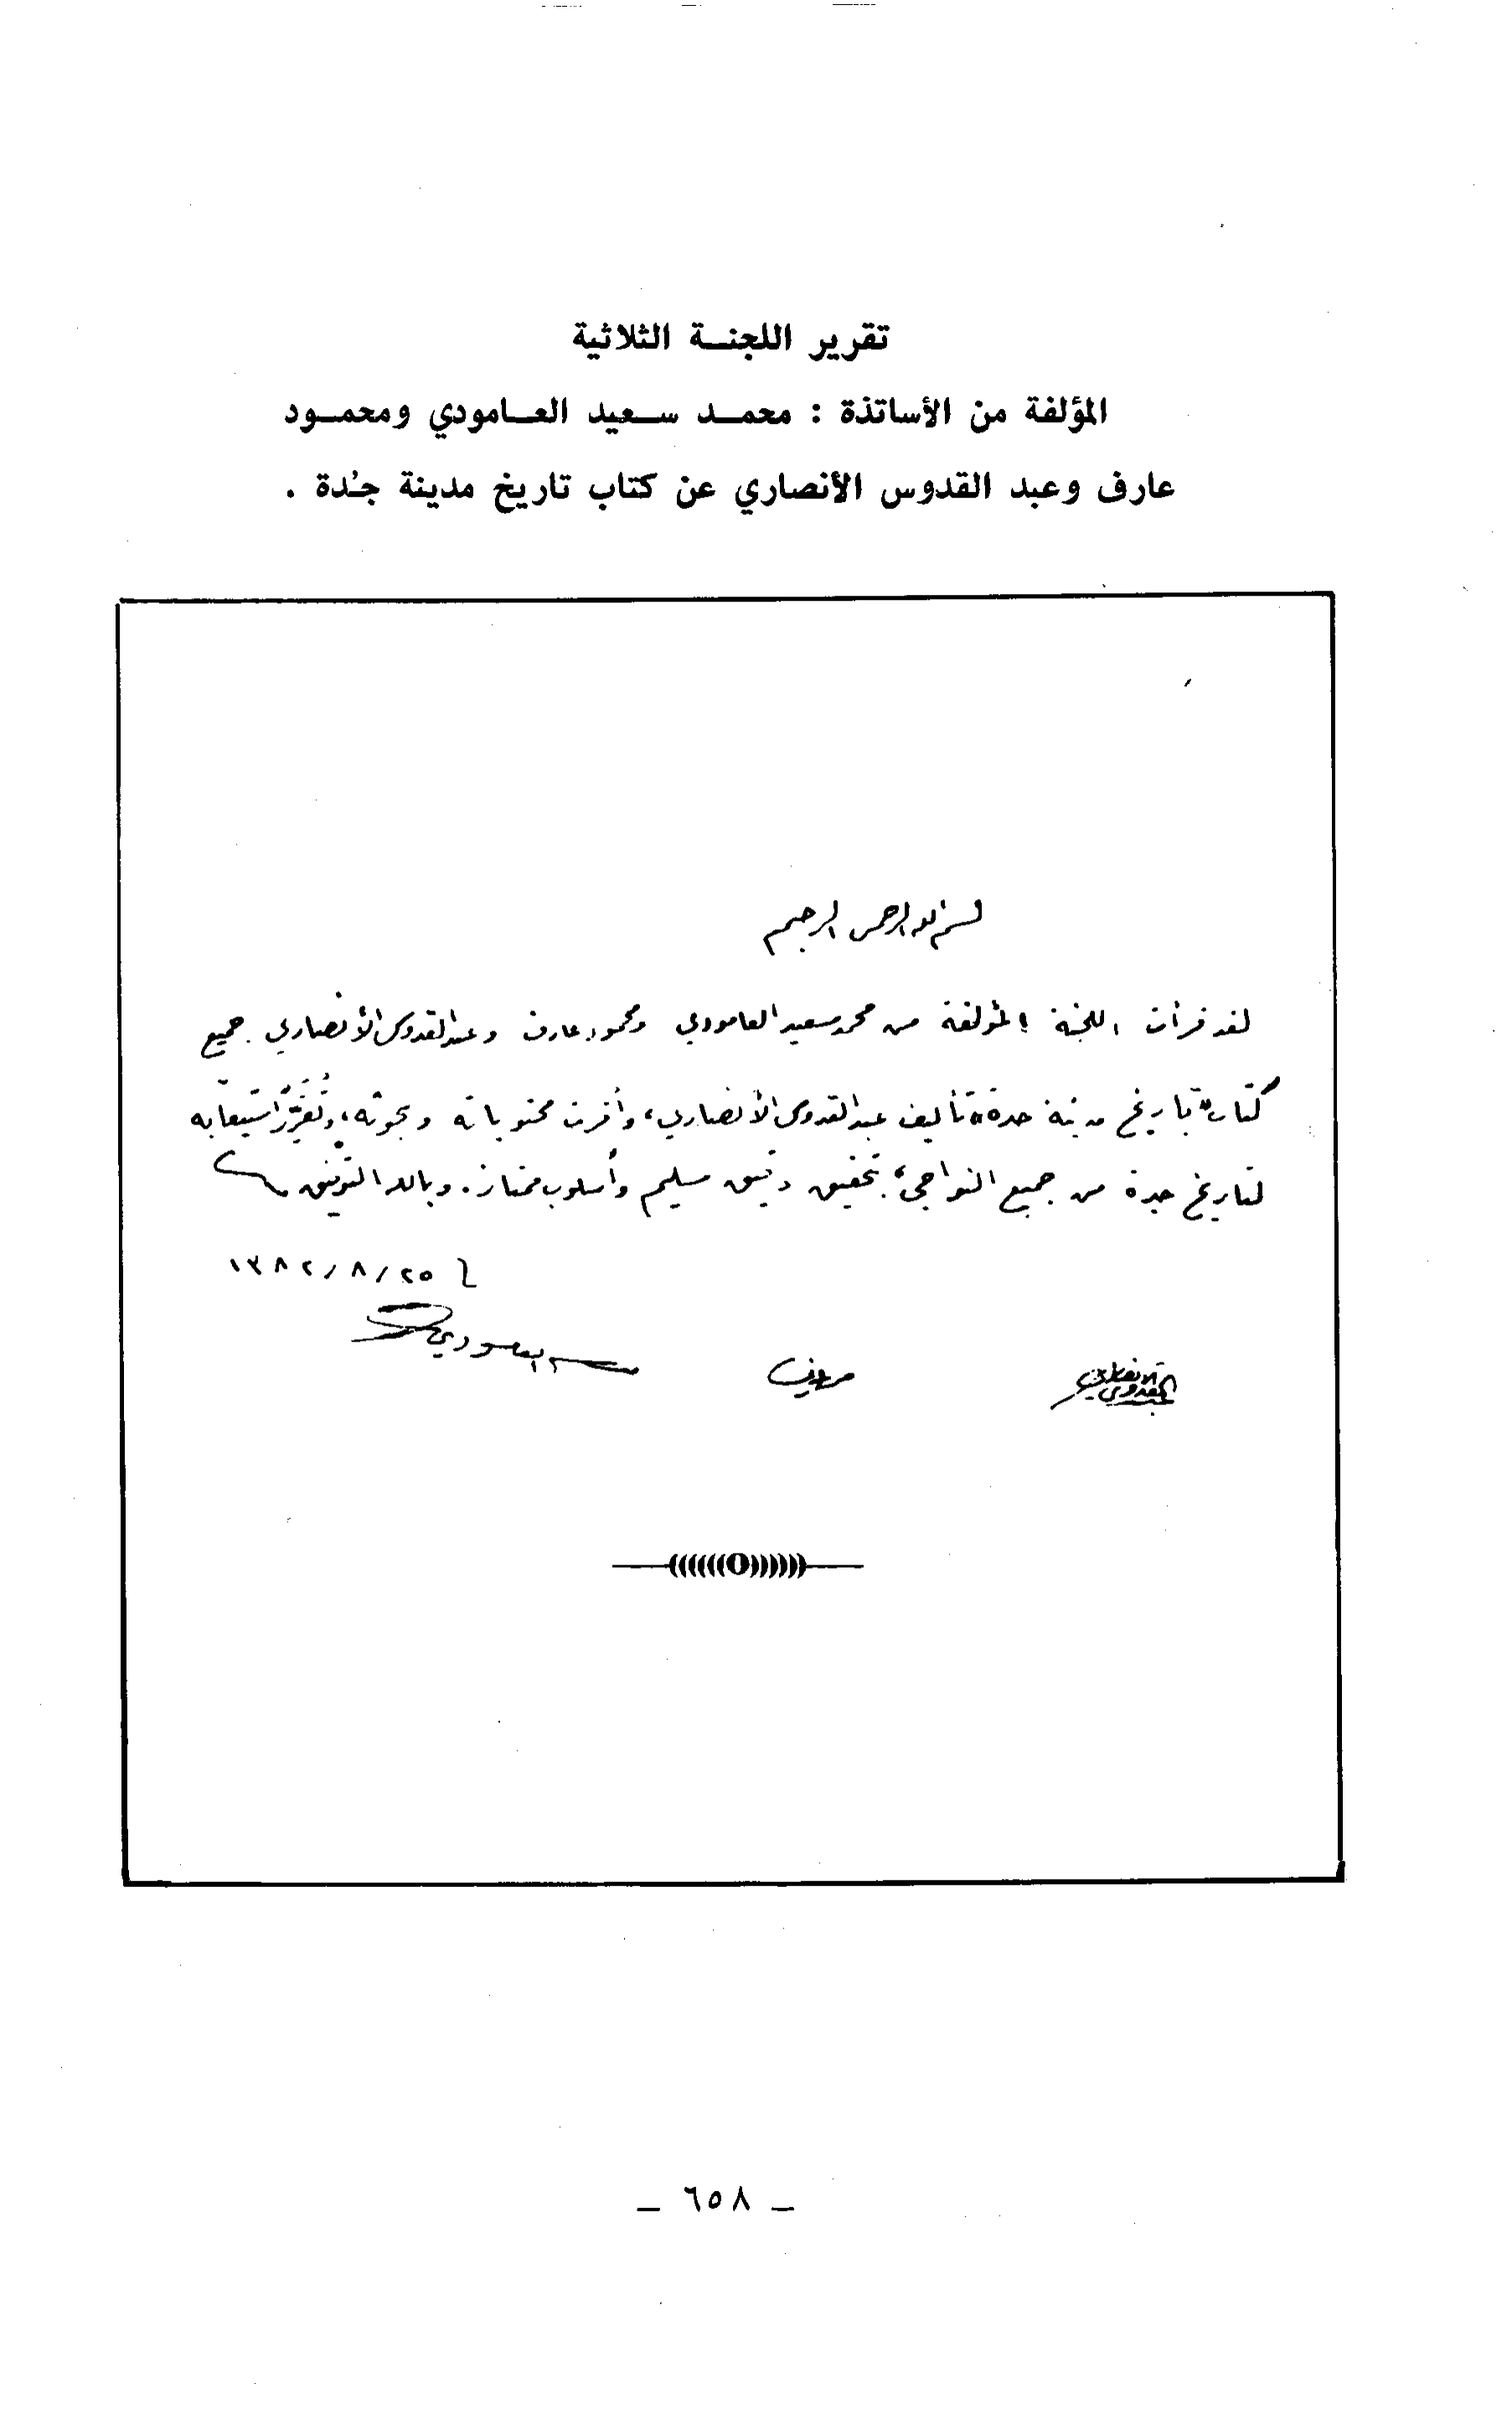 تقرير اللجنة الثلاثية
المؤلفة من الأساتذة : محمد سعيد العامودي ومحمود
عارف وعبد القدوس الأنصاري عن كتاب تاريخ مدينة جُدة .
بسم الله الرحمن الرحيم
لقد قرأت اللجنة المؤلفة من محمد سعيد العامودي ومحمود عارف وعبد القدوس الأنصاري جميع
كتاب "تاريخ مدينة جدة" تأليف عبد القدوس الأنصاري، وأقرت محتوياته وبحوثه، وتُقرِّرُ استيعابه
لتاريخ جدة من جميع النواحي، بتحقيق دقيق سليم وأسلوب ممتاز. وبالله التوفيق
٢٥/٨/١٣٨٢
العامودي
عارف
عبد القدوس الأنصاري
— ٦٥٨ —